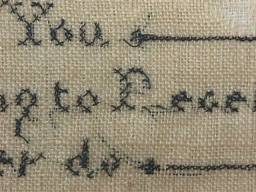 You
to Rece
er do